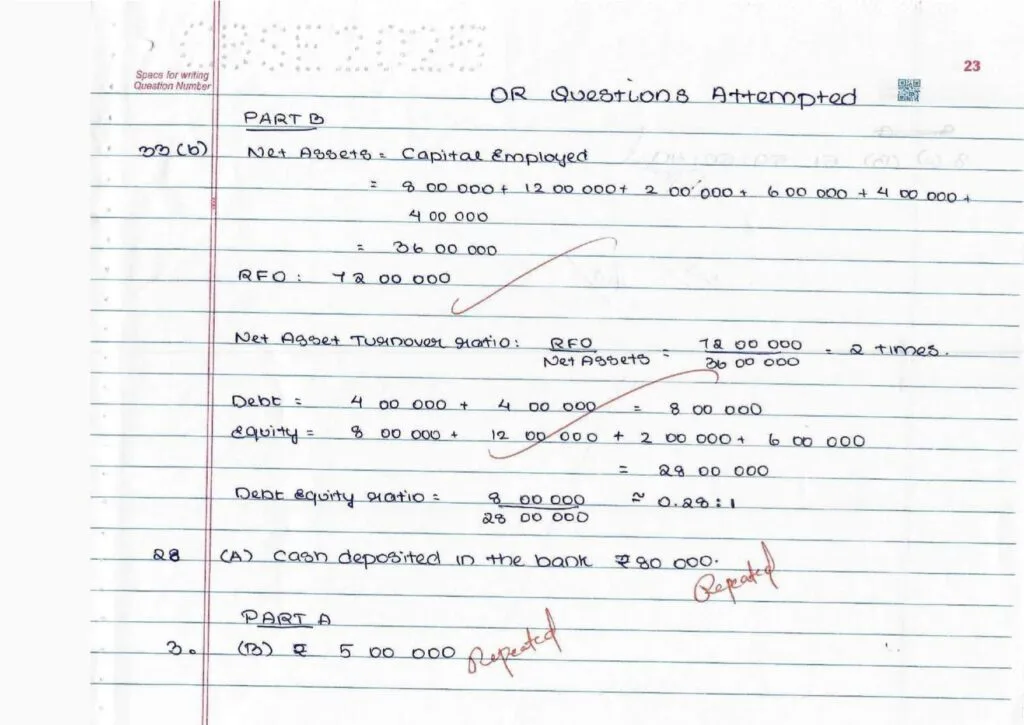 CBSE 2025
23
Space for writing
Question Number
OR Questions Attempted
PART B
33 (b) Net Assets = Capital Employed
= 8 00 000 + 12 00 000 + 2 00 000 + 6 00 000 + 4 00 000 +
4 00 000
= 36 00 000
RFO : 72 00 000
Net Asset Turnover ratio : RFO / Net Assets = 72 00 000 / 36 00 000 = 2 times.
Debt = 4 00 000 + 4 00 000 = 8 00 000
Equity = 8 00 000 + 12 00 000 + 2 00 000 + 6 00 000
= 28 00 000
Debt Equity ratio = 8 00 000 / 28 00 000 ≈ 0.28 : 1
28 (A) Cash deposited in the bank ₹ 80 000. Repeated
PART A
3. (B) ₹ 5 00 000 Repeated